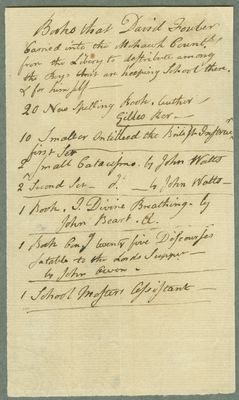 Books that David Fowler
Carried into the Mohawk Country
from the Library to destribute among
the Boys their on keeping School there,
& for himself
20 New Spelling Book, Author
Gilles Ker
10 Smaller Intitleed the British Instructr
first Set
7 Small Catacisms. by John Watts
2 Second Set - do. - by John Watts
1 Book. I. Divine Breathing. by
John Beart. &.
1 Book Cong twenty five Discourses
sutable to the Lords Supper
by John Owen.
1 School Mastars Assistant